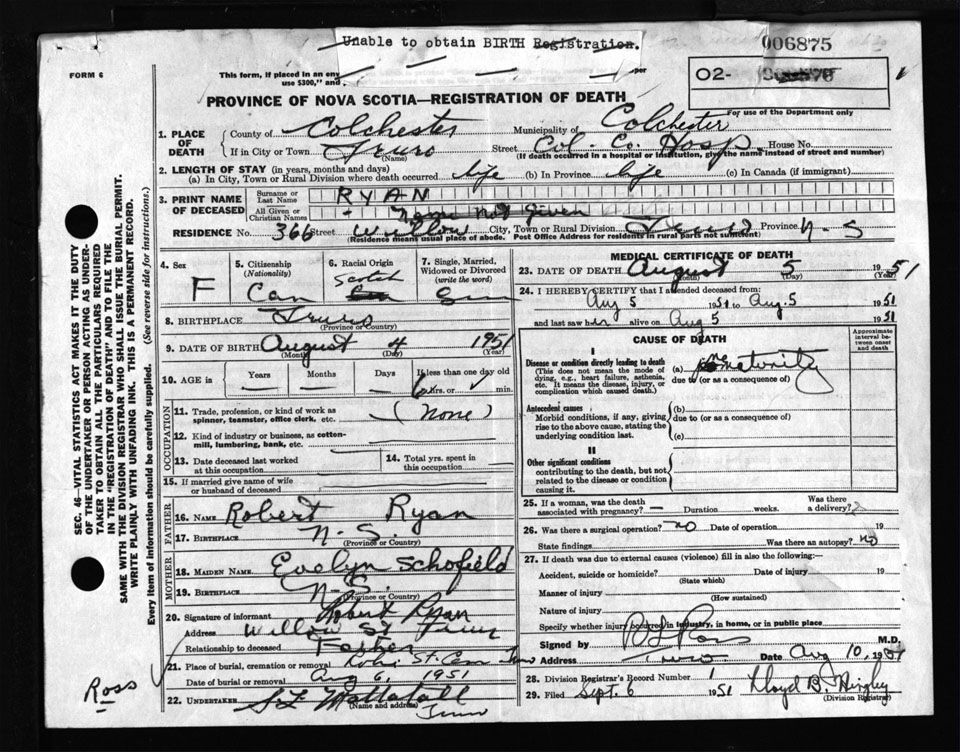 Unable to obtain BIRTH Registration.
006875
FORM 6
This form, if placed in an env
use $300," and
per
02-
For use of the Department only
PROVINCE OF NOVA SCOTIA—REGISTRATION OF DEATH
1. PLACE OF DEATH
County of Colchester Municipality of Colchester
If in City or Town Truro Street Col. Co. Hosp. House No.
(Name) (If death occurred in a hospital or institution, give the name instead of street and number)
2. LENGTH OF STAY (in years, months and days)
(a) In City, Town or Rural Division where death occurred life (b) In Province life (c) In Canada (if immigrant)
3. PRINT NAME OF DECEASED
Surname or Last Name RYAN
All Given or Christian Names - Name Not Given
RESIDENCE No. 366 Street Willow City, Town or Rural Division Truro Province N-S
(Residence means usual place of abode. Post Office Address for residents in rural parts not sufficient)
4. Sex F
5. Citizenship (Nationality) Can
6. Racial Origin Scotch
7. Single, Married, Widowed or Divorced (write the word) Sin
8. BIRTHPLACE Truro
(Province or Country)
9. DATE OF BIRTH August 4 1951
(Month) (Day) (Year)
10. AGE in Years Months Days If less than one day old
6 hrs. or min.
OCCUPATION
11. Trade, profession, or kind of work as spinner, teamster, office clerk, etc. (None)
12. Kind of industry or business, as cotton-mill, lumbering, bank, etc.
13. Date deceased last worked at this occupation
14. Total yrs. spent in this occupation
15. If married give name of wife or husband of deceased
FATHER
16. NAME Robert Ryan
17. BIRTHPLACE N-S.
(Province or Country)
MOTHER
18. MAIDEN NAME Evelyn Schofield
19. BIRTHPLACE N-S.
(Province or Country)
20. Signature of informant Robert Ryan
Address Willow St Truro
Relationship to deceased Father
21. Place of burial, cremation or removal Robie St. Cem Truro
Date of burial or removal Aug 6, 1951
22. UNDERTAKER
(Name and address) Truro
MEDICAL CERTIFICATE OF DEATH
23. DATE OF DEATH August 5 1951
(Month) (Day) (Year)
24. I HEREBY CERTIFY that I attended deceased from:
Aug 5 1951 to Aug. 5 1951
and last saw her alive on Aug 5 1951
CAUSE OF DEATH
Approximate interval between onset and death
I
Disease or condition directly leading to death
(This does not mean the mode of dying, e.g., heart failure, asthenia, etc. It means the disease, injury, or complication which caused death.)
(a) prematurity
due to (or as a consequence of)
Antecedent causes
Morbid conditions, if any, giving rise to the above cause, stating the underlying condition last.
(b)
due to (or as a consequence of)
(c)
II
Other significant conditions
contributing to the death, but not related to the disease or condition causing it.
25. If a woman, was the death associated with pregnancy? — Duration weeks. Was there a delivery?
26. Was there a surgical operation? no Date of operation 19
State findings Was there an autopsy? no
27. If death was due to external causes (violence) fill in also the following:—
Accident, suicide or homicide? Date of injury 19
(State which)
Manner of injury
(How sustained)
Nature of injury
Specify whether injury occurred in industry, in home, or in public place
Signed by Ross M.D.
Address Truro Date Aug 10, 1951
28. Division Registrar's Record Number 1
29. Filed Sept. 6 1951 Lloyd B.
(Division Registrar)
Ross
SEC. 46—VITAL STATISTICS ACT MAKES IT THE DUTY
OF THE UNDERTAKER OR PERSON ACTING AS UNDERTAKER TO OBTAIN ALL THE PARTICULARS REQUIRED
IN THE "REGISTRATION OF DEATH" AND TO FILE THE
SAME WITH THE DIVISION REGISTRAR WHO SHALL ISSUE THE BURIAL PERMIT.
WRITE PLAINLY WITH UNFADING INK. THIS IS A PERMANENT RECORD.
Every item of information should be carefully supplied. (See reverse side for instructions.)